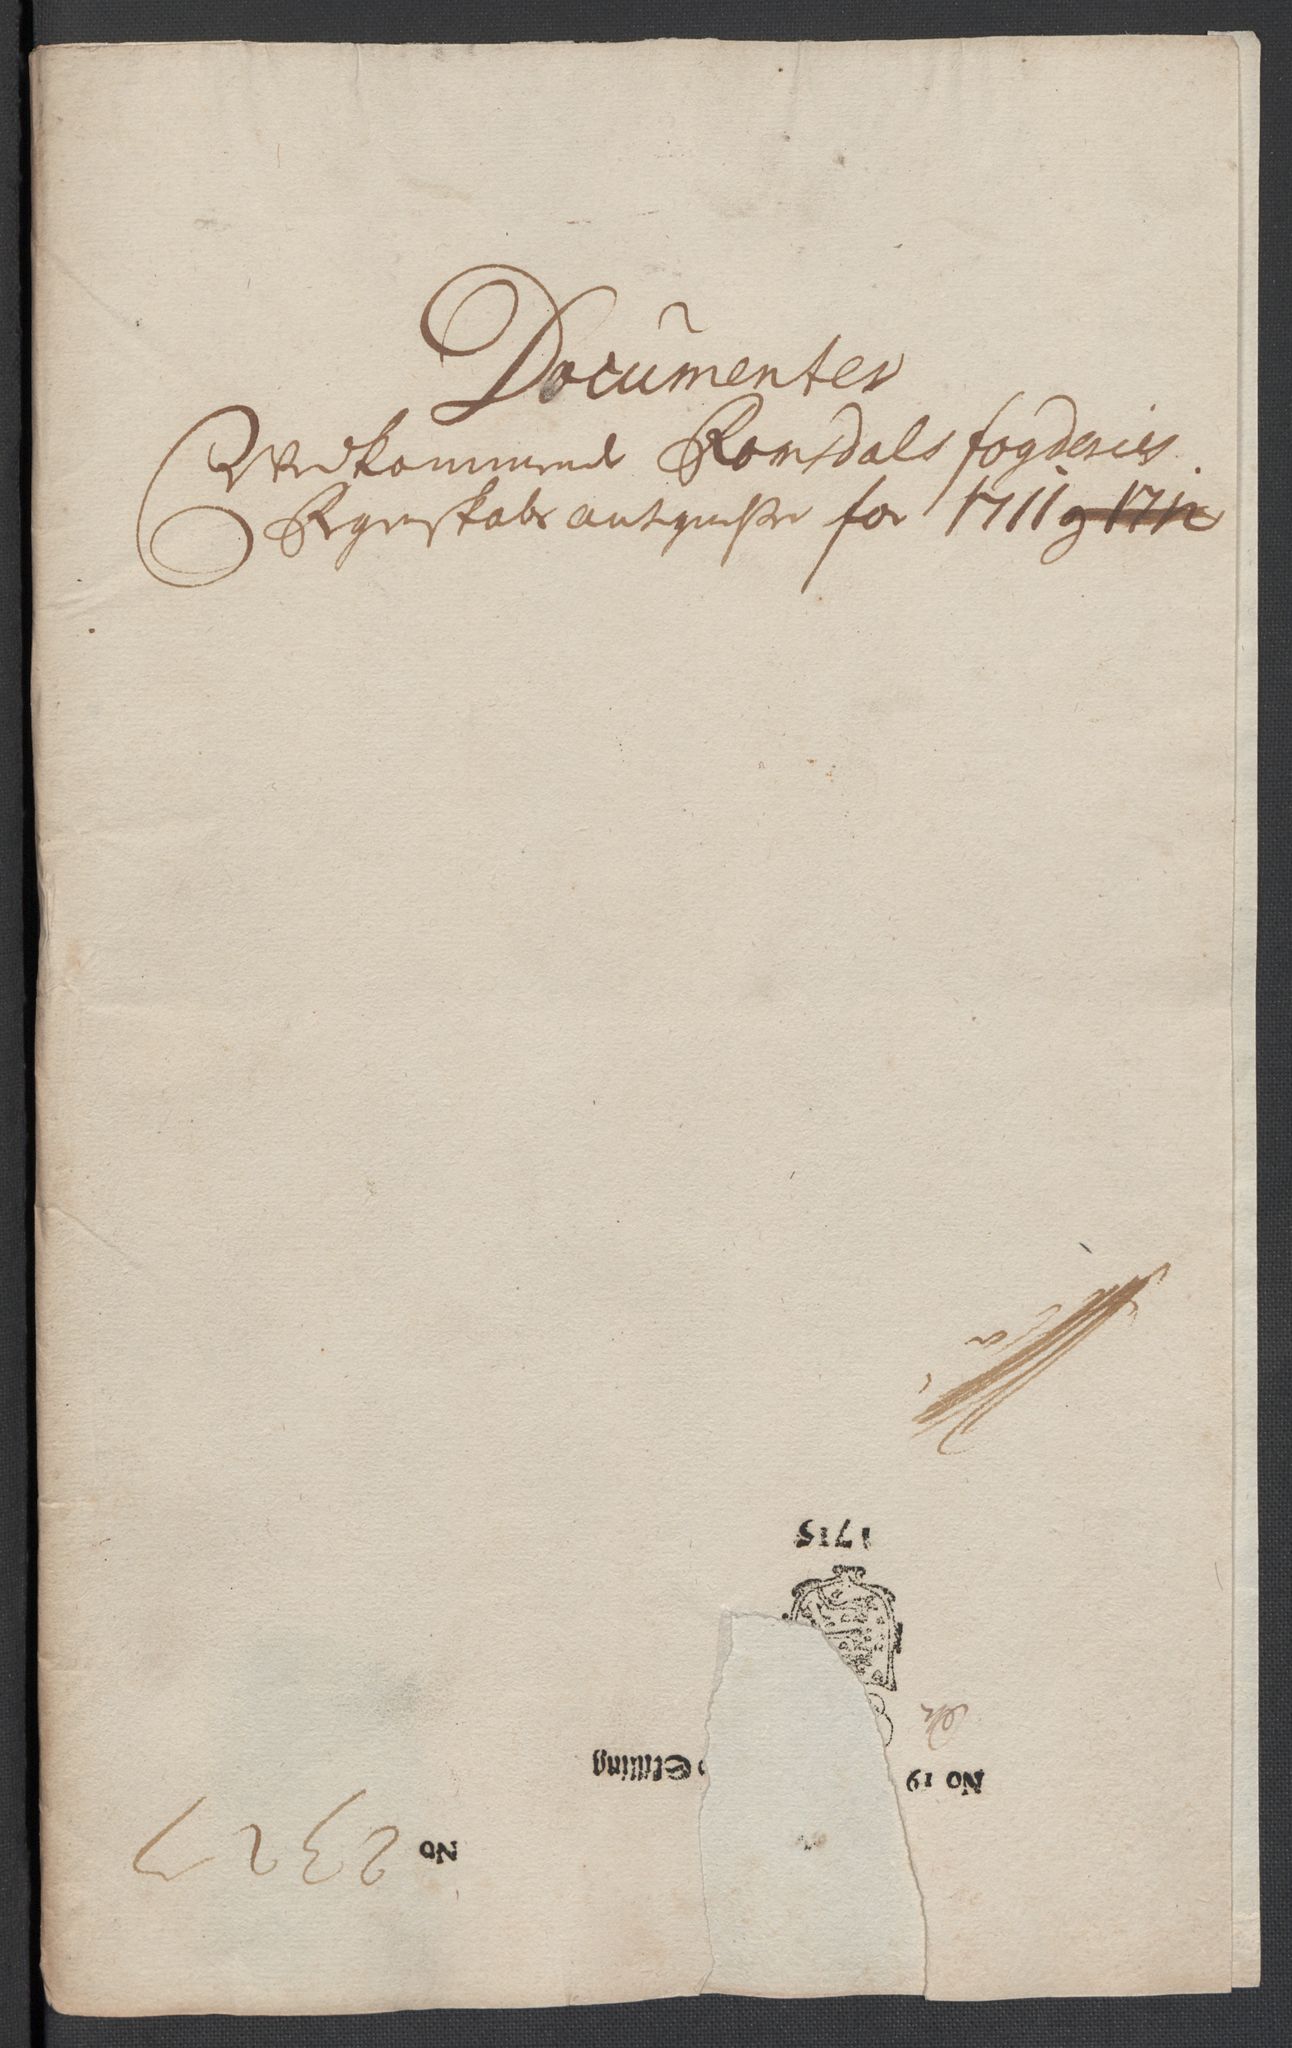 Documenter
Vedkommende Romsdals fogderies
Regenskabs antegnelser for 1711 og 1712
1715
No 19
Skilling
No 2327